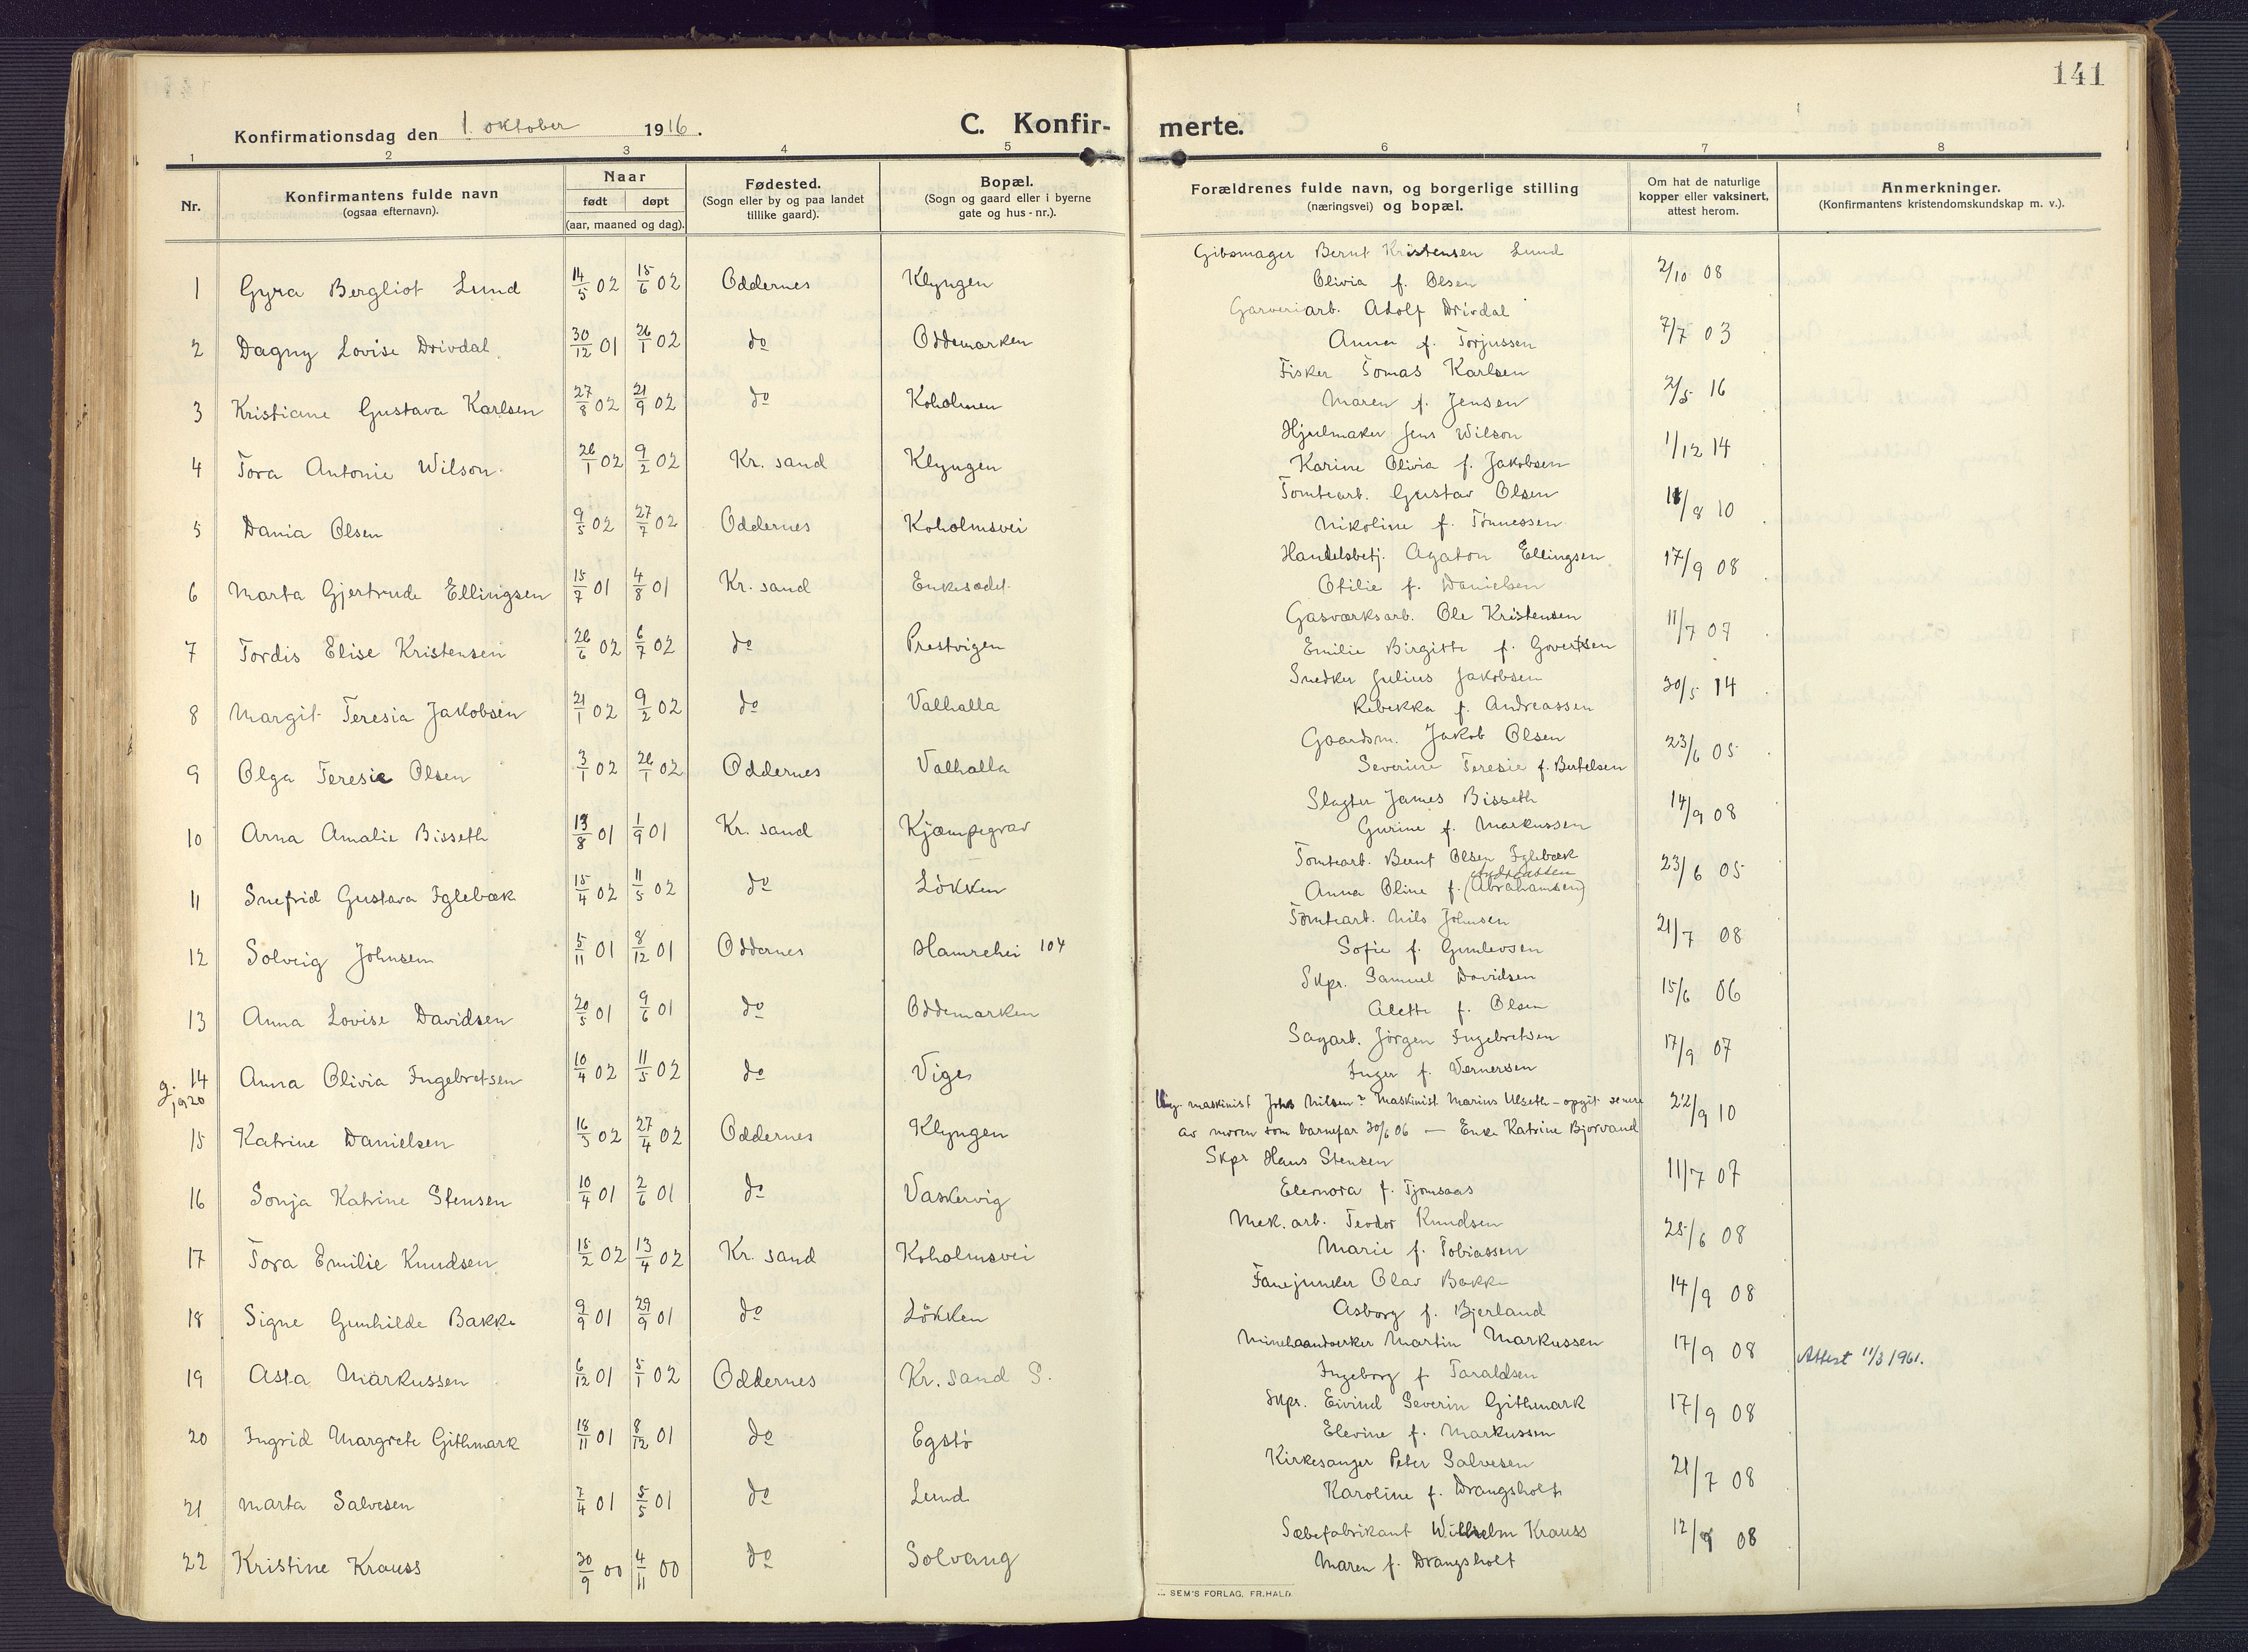 141
Konfirmationsdag den 1. oktober 1916.
C. Konfir-
merte.
1 2 3 4 5 6 7 8
Nr.
Konfirmantens fulde navn
(ogsaa efternavn).
Naar
født døpt
(aar, maaned og dag).
Fødested.
(Sogn eller by og paa landet
tillike gaard).
Bopæl.
(Sogn og gaard eller i byerne
gate og hus-nr.).
Forældrenes fulde navn, og borgerlige stilling
(næringsvei) og bopæl.
Om hat de naturlige
kopper eller vaksinert,
attest herom.
Anmerkninger.
(Konfirmantens kristendomskundskap m. v.).
Gibsmager Bernt Kristensen Lund
1 Gyra Bergliot Lund 14/5 02 15/6 02 Oddernes Klyngen Olivia f. Olsen 2/10 08
Garveriarb. Adolf Drivdal
2 Dagny Lovise Drivdal 30/12 01 26/1 02 do Oddemarken Anna f. Torjussen 7/7 03
Fisker Tomas Karlsen
3 Kristiane Gustava Karlsen 27/8 02 21/9 02 do Koholmen Maren f. Jensen 2/5 16
Hjulmaker Jens Wilson
4 Tora Antonie Wilson 26/1 02 9/2 02 Kr. sand Klyngen Karine Olivia f. Jakobsen 1/12 14
Tomtearb. Gustav Olsen
5 Dania Olsen 9/5 02 27/7 02 Oddernes Koholmsvei Nikoline f. Tønnessen 18/8 10
Handelsbetj. Agaton Ellingsen
6 Marta Gjertrude Ellingsen 15/7 01 4/8 01 Kr. sand Enkesædet Otilie f. Danielsen 17/9 08
Gasværksarb. Ole Kristensen
7 Tordis Elise Kristensen 26/6 02 6/7 02 do Prestvigen Emilie Birgitte f. Govertsen 11/7 07
Snedker Julius Jakobsen
8 Margit Teresia Jakobsen 21/1 02 9/2 02 do Valhalla Rebekka f. Andreassen 30/5 14
Gaardsm. Jakob Olsen
9 Olga Teresie Olsen 3/1 02 26/1 02 Oddernes Valhalla Severine Teresie f. Bertelsen 23/6 05
Slagter James Bisseth
10 Arna Amalie Bisseth 13/8 01 1/9 01 Kr. sand Kjæmpegrav Gurine f. Markussen 14/9 08
Tomtearb. Bernt Olsen Iglebæk
Andreassen
11 Snefrid Gustava Iglebæk 15/4 02 11/5 02 do Løkken Anna Oline f. (Abrahamsen) 23/6 05
Tomtearb. Nils Johnsen
12 Solveig Johnsen 5/11 01 8/12 01 Oddernes Hamrehei 104 Sofie f. Gunlevsen 21/7 08
Skpr. Samuel Davidsen
13 Anna Lovise Davidsen 20/5 01 9/6 01 do Oddemarken Alette f. Olsen 15/6 06
Sagarb. Jørgen Ingebretsen
14 Anna Olivia Ingebretsen 10/4 02 11/5 02 do Vige Inger f. Vernersen 17/9 07
g. 1920
maskinist Johs Nilsen? Maskinist Marius Ulseth – opgit senere
15 Katrine Danielsen 16/3 02 27/4 02 Oddernes Klyngen av moren som barnefar 30/6 06 — Enke Katrine Bjorvand 22/9 10
Skpr Hans Stensen
16 Sonja Katrine Stensen 10/4 01 2/6 01 do Vaskervig Eleonora f. Tjomsaas 11/7 07
Mek. arb. Teodor Knudsen
17 Tora Emilie Knudsen 15/2 02 13/4 02 Kr. sand Koholmsvei Marie f. Tobiassen 25/6 08
Fanejunker Olav Bakke
18 Signe Gunhilde Bakke 9/9 01 29/9 01 do Løkken Asborg f. Bjerland 14/9 08
Minehaandverker Martin Markussen
19 Asta Markussen 6/12 01 5/1 02 Oddernes Kr. sand S. Ingeborg f Taraldsen 17/9 08 Attest 11/3 1961.
Skpr. Eivind Severin Githmark
20 Ingrid Margrete Githmark 18/11 01 8/12 01 do Egstø Elevine f. Markussen 17/9 08
Kirkesanger Peter Salvesen
21 Marta Salvesen 7/4 01 5/5 01 do Lund Karoline f. Drangsholt 21/7 08
Sæbefabrikant Wilhelm Krauss
22 Kristine Krauss 30/9 00 4/11 00 do Solvang Maren f. Drangsholt 12/9 08
SEM'S FORLAG, FR.HALD.